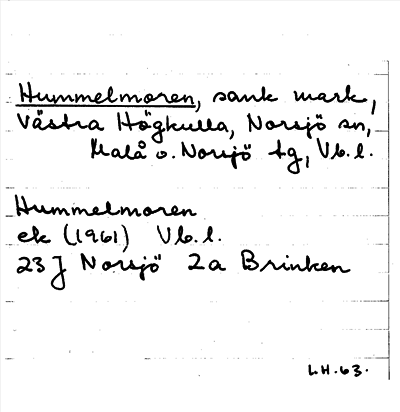 Hummelmoren, sank mark,
Västra Högkulla, Norsjö sn,
Malå o. Norsjö tg, Vb. l.
Hummelmoren
ek (1961) Vb. l.
23 J Norsjö 2a Brinken
L.H. 63.